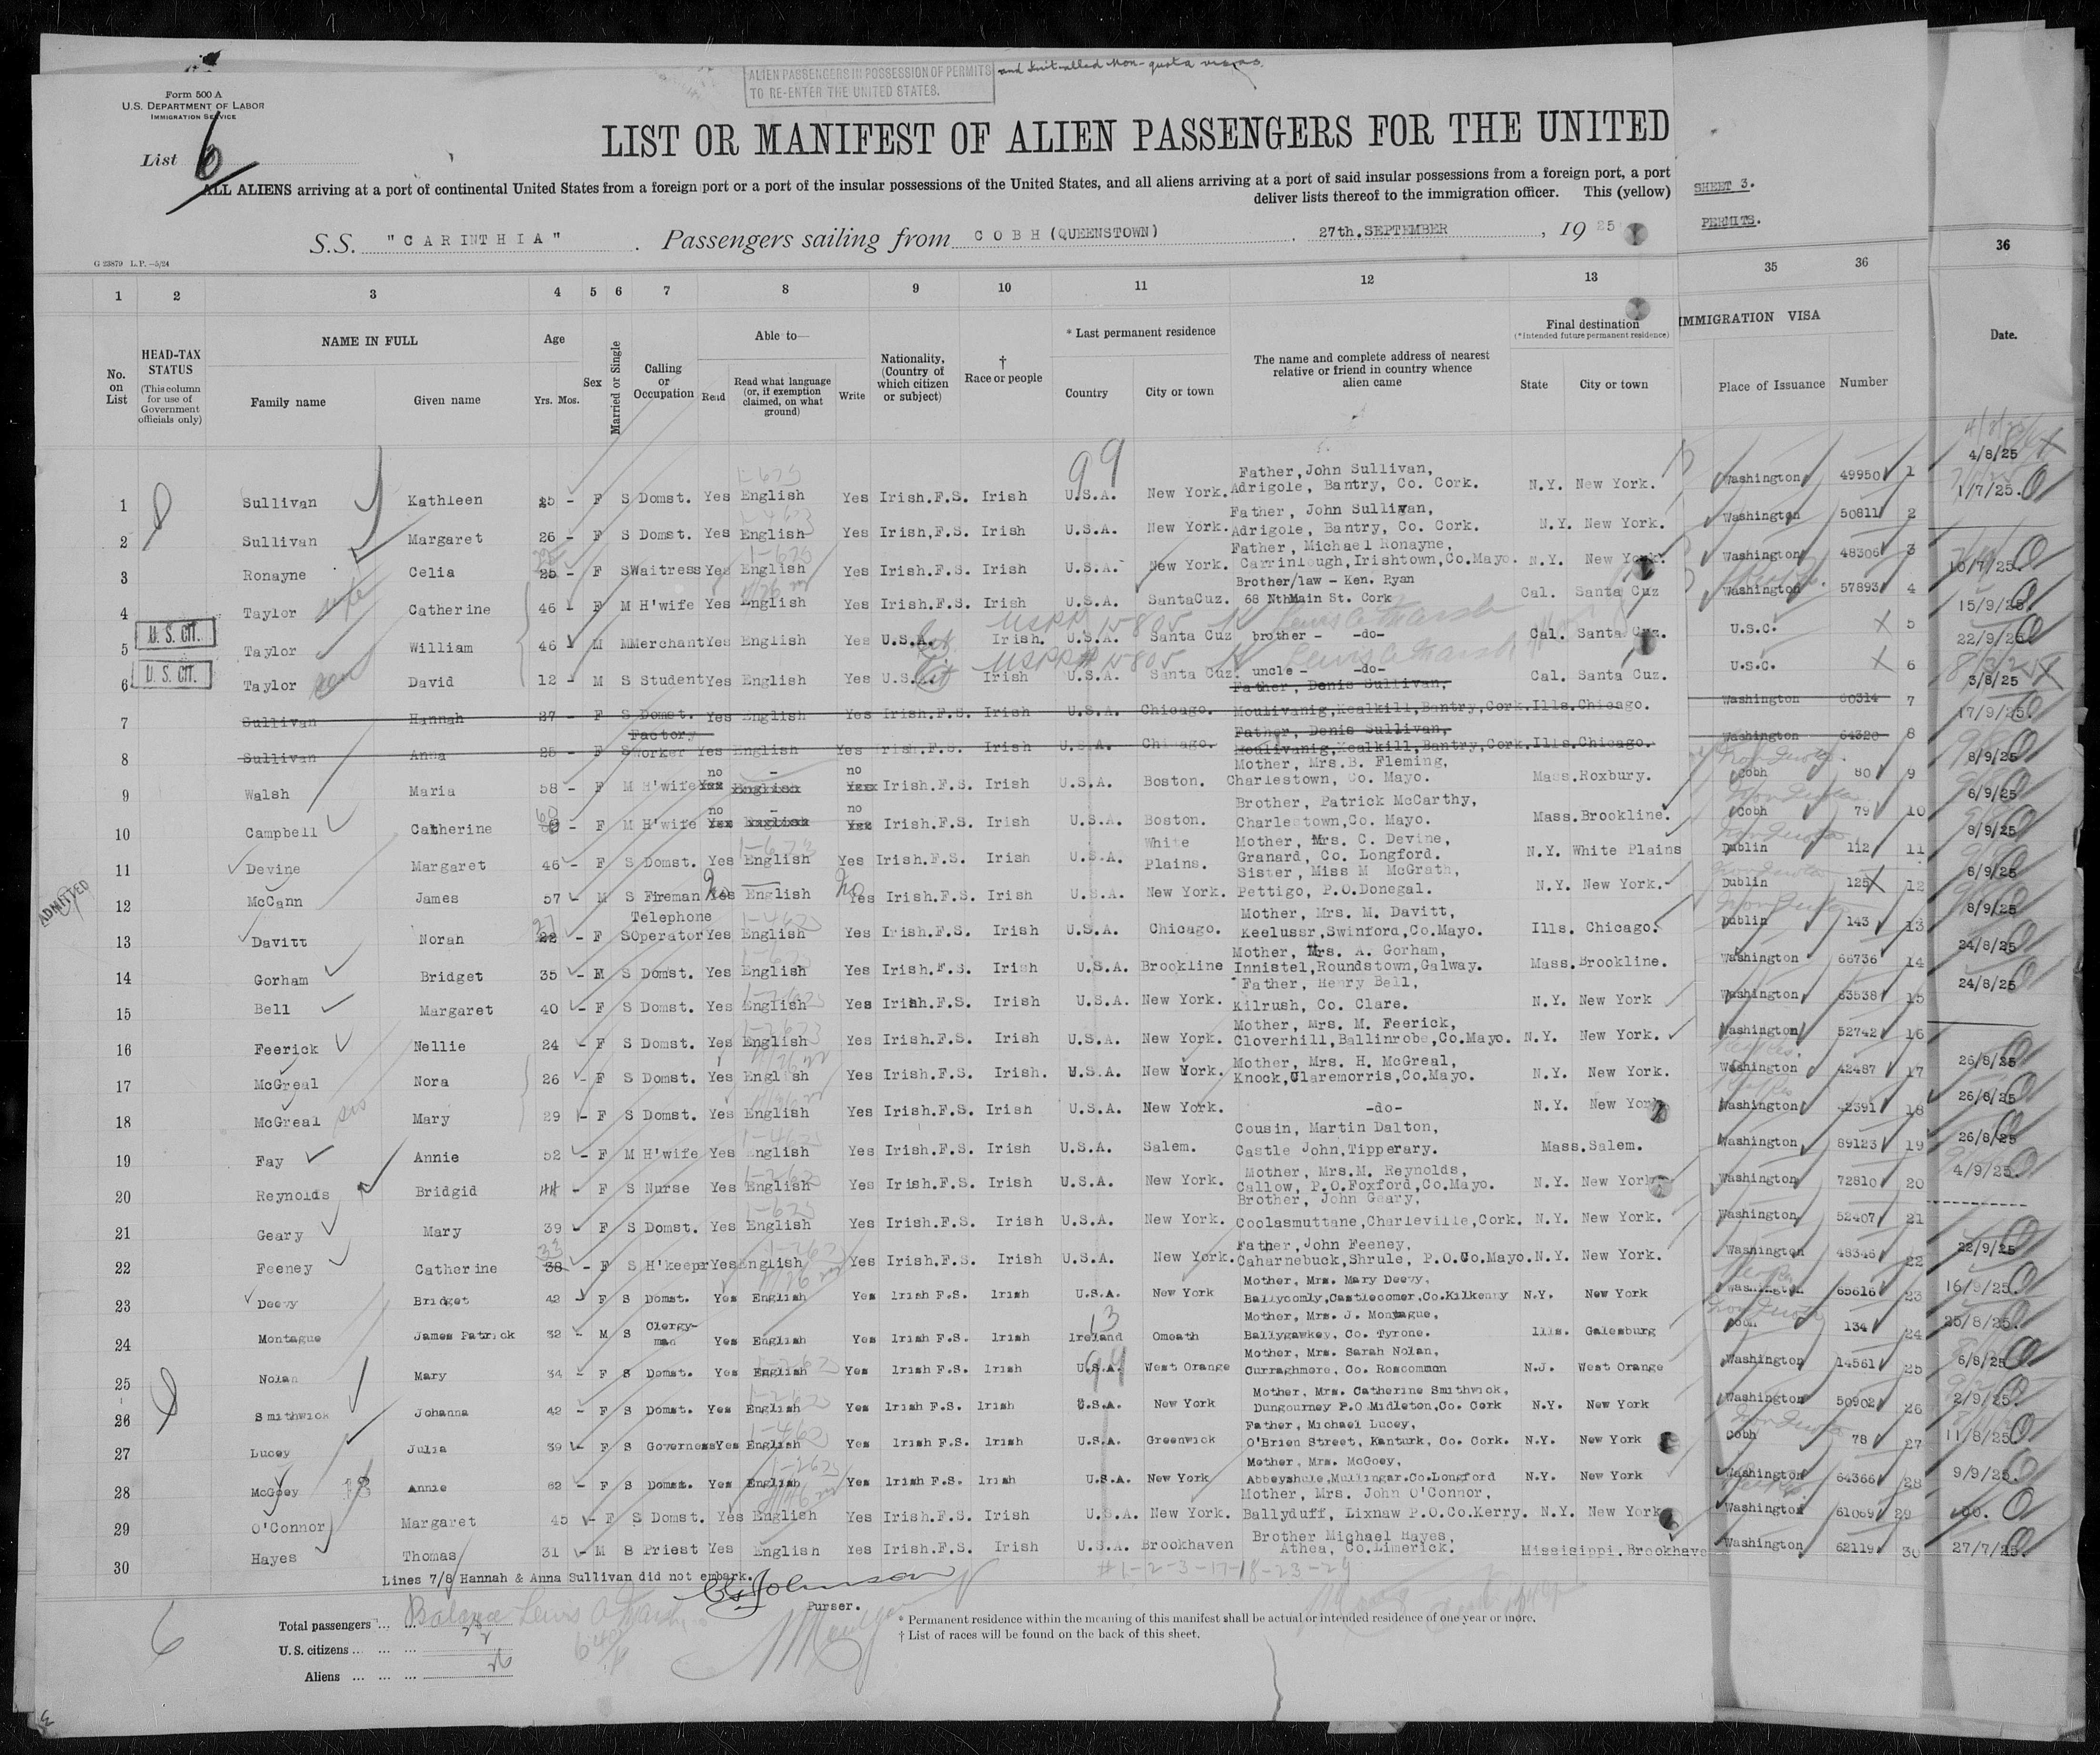 ALIEN PASSENGERS IN POSSESSION OF PERMITS and Non-quota visas.
TO RE-ENTER THE UNITED STATES.
Form 500 A
U.S. DEPARTMENT OF LABOR
IMMIGRATION SERVICE
List 6
LIST OR MANIFEST OF ALIEN PASSENGERS FOR THE UNITED
ALL ALIENS arriving at a port of continental United States from a foreign port or a port of the insular possessions of the United States, and all aliens arriving at a port of said insular possessions from a foreign port, a port
deliver lists thereof to the immigration officer. This (yellow)
SHEET 3.
PERMITS.
S.S. "CARINTHIA" . Passengers sailing from COBH (QUEENSTOWN) . 27th.SEPTEMBER , 19 25
G 23879 L.P.—5/24
1 2 3 4 5 6 7 8 9 10 11 12 13 35 36 36
No. on List
HEAD-TAX STATUS (This column for use of Government officials only)
NAME IN FULL
Family name Given name
Age Yrs. Mos.
Sex
Married or Single
Calling or Occupation
Able to— Read Read what language (or, if exemption claimed, on what ground) Write
Nationality, (Country of which citizen or subject)
† Race or people
* Last permanent residence Country City or town
The name and complete address of nearest relative or friend in country whence alien came
Final destination (*Intended future permanent residence) State City or town
IMMIGRATION VISA Place of Issuance Number
Date.
99
1 Sullivan Kathleen 25 - F S Domst. Yes English Yes Irish.F.S. Irish U.S.A. New York. Father, John Sullivan, Adrigole, Bantry, Co. Cork. N.Y. New York. Washington 49950 1 4/8/25
2 Sullivan Margaret 26 - F S Domst. Yes English Yes Irish.F.S. Irish U.S.A. New York. Father, John Sullivan, Adrigole, Bantry, Co. Cork. N.Y. New York. Washington 50811 2 1/7/25.
3 Ronayne Celia 25 - F S Waitress Yes English Yes Irish.F.S. Irish U.S.A. New York. Father, Michael Ronayne, Carrinlough,Irishtown,Co.Mayo. N.Y. New York. Washington 48306 3
4 Taylor wife Catherine 46 - F M H'wife Yes English Yes Irish.F.S. Irish U.S.A. SantaCuz. Brother/law - Ken. Ryan 68 NthMain St. Cork Cal. Santa Cuz Washington 57893 4 10/7/25.
U. S. CIT.
5 Taylor William 46 M M Merchant Yes English Yes U.S.A. Irish. U.S.A. Santa Cuz brother - -do- Cal. Santa Cuz. U.S.C. 5 15/9/25
U. S. CIT.
6 Taylor son David 12 - M S Student Yes English Yes U.S.A. Irish U.S.A. Santa Cuz. uncle -do- Cal. Santa Cuz. U.S.C. 6 22/9/25
7 Sullivan Hannah 27 - F S Domst. Yes English Yes Irish.F.S. Irish U.S.A. Chicago. Father, Denis Sullivan, Moulivanig,Kealkill,Bantry,Cork. Ills.Chicago. Washington 60314 7 3/8/25
8 Sullivan Anna 25 - F S Factory worker Yes English Yes Irish.F.S. Irish U.S.A. Chicago. Father, Denis Sullivan, Moulivanig,Kealkill,Bantry,Cork. Ills.Chicago. Washington 64320 8 17/9/25.
9 Walsh Maria 58 - F M H'wife no - English no Irish.F.S. Irish U.S.A. Boston. Mother, Mrs.B. Fleming, Charlestown, Co. Mayo. Mass.Roxbury. Cobh 80 9 8/9/25
10 Campbell Catherine 60 - F M H'wife no - English no Irish.F.S. Irish U.S.A. Boston. Brother, Patrick McCarthy, Charlestown,Co. Mayo. Mass.Brookline. Cobh 79 10 8/9/25
11 Devine Margaret 46 - F S Domst. Yes English Yes Irish.F.S. Irish U.S.A. White Plains. Mother, Mrs. C. Devine, Granard, Co. Longford. N.Y. White Plains Dublin 112 11 8/9/25
12 McCann James 57 M S Fireman No Yes English No Yes Irish.F.S. Irish U.S.A. New York. Sister, Miss M McGrath, Pettigo, P.O.Donegal. N.Y. New York. Dublin 125 12 8/9/25
ADMITTED
13 Davitt Noran 27 - F S Telephone Operator Yes English Yes Irish.F.S. Irish U.S.A. Chicago. Mother, Mrs. M. Davitt, Keelussr,Swinford,Co.Mayo. Ills. Chicago. Dublin 143 13 8/9/25
14 Gorham Bridget 35 - F S Domst. Yes English Yes Irish.F.S. Irish U.S.A. Brookline Mother, Mrs. A. Gorham, Innistel,Roundstown,Galway. Mass.Brookline. Washington 66736 14 24/8/25
15 Bell Margaret 40 - F S Domst. Yes English Yes Irish.F.S. Irish U.S.A. New York. Father, Henry Bell, Kilrush, Co. Clare. N.Y. New York Washington 63538 15 24/8/25
16 Feerick Nellie 24 - F S Domst. Yes English Yes Irish.F.S. Irish U.S.A. New York. Mother, Mrs. M. Feerick, Cloverhill,Ballinrobe,Co.Mayo. N.Y. New York. Washington 52742 16
17 McGreal Nora 26 - F S Domst. Yes English Yes Irish.F.S. Irish. U.S.A. New York. Mother, Mrs. H. McGreal, Knock,Claremorris,Co.Mayo. N.Y. New York. Washington 42487 17 26/8/25
18 McGreal sis Mary 29 - F S Domst. Yes English Yes Irish.F.S. Irish U.S.A. New York. -do- N.Y. New York Washington 42391 18 26/8/25
19 Fay Annie 52 - F M H'wife Yes English Yes Irish.F.S. Irish U.S.A. Salem. Cousin, Martin Dalton, Castle John,Tipperary. Mass.Salem. Washington 89123 19 26/8/25
20 Reynolds Bridgid 44 - F S Nurse Yes English Yes Irish.F.S. Irish U.S.A. New York. Mother, Mrs.M. Reynolds, Callow, P.O.Foxford,Co.Mayo. N.Y. New York Washington 72810 20 4/9/25.
21 Geary Mary 39 - F S Domst. Yes English Yes Irish.F.S. Irish U.S.A. New York. Brother, John Geary, Coolasmuttane,Charleville,Cork. N.Y. New York. Washington 52407 21
22 Feeney Catherine 33 38 - F S H'keepr Yes English Yes Irish.F.S. Irish U.S.A. New York. Father, John Feeney, Caharnebuck,Shrule, P.O.Co.Mayo. N.Y. New York. Washington 48346 22 22/9/25
23 Deevy Bridget 42 - F S Domst. Yes English Yes Irish F.S. Irish U.S.A. New York Mother, Mrs. Mary Deevy, Ballycomly,Castlecomer,Co.Kilkenny N.Y. New York Washington 65616 23 16/9/25.
24 Montague James Patrick 32 - M S Clergy-man Yes English Yes Irish F.S. Irish 13 Ireland Omeath Mother, Mrs. J. Montague, Ballygawkey, Co. Tyrone. Ills. Galesburg Cobh 134 24 25/8/25.
25 Nolan Mary 34 - F S Domst. Yes English Yes Irish F.S. Irish U.S.A. West Orange Mother, Mrs. Sarah Nolan, Curraghmore, Co. Roscommon N.J. West Orange Washington 14561 25 6/8/25
26 Smithwick Johanna 42 - F S Domst. Yes English Yes Irish F.S. Irish U.S.A. New York Mother, Mrs. Catherine Smithwick, Dungourney P.O Midleton,Co. Cork N.Y. New York Washington 50902 26 2/9/25.
27 Lucey Julia 39 - F S Governess Yes English Yes Irish F.S. Irish U.S.A. Greenwick Father, Michael Lucey, O'Brien Street, Kanturk, Co. Cork. N.Y. New York Cobh 78 27 11/8/25.
28 McGoey Annie 62 - F S Domst. Yes English Yes Irish F.S. Irish U.S.A. New York Mother, Mrs. McGoey, Abbeyshule,Mullingar.Co.Longford N.Y. New York Washington 64366 28 9/9/25.
29 O'Connor Margaret 45 - F S Domst. Yes English Yes Irish.F.S. Irish U.S.A. New York. Mother, Mrs. John O'Connor, Ballyduff, Lixnaw P.O.Co.Kerry. N.Y. New York Washington 61069 29 do.
30 Hayes Thomas 31 - M S Priest Yes English Yes Irish.F.S. Irish U.S.A. Brookhaven Brother Michael Hayes, Athea, Co.Limerick. Missisippi.Brookhave Washington 62119 30 27/7/25.
Lines 7/8 Hannah & Anna Sullivan did not embark.
#1-2-3-17-18-23-29
Purser.
Total passengers ... ... 28
U. S. citizens ... ... ... 2
Aliens ... ... ... 26
6
* Permanent residence within the meaning of this manifest shall be actual or intended residence of one year or more.
† List of races will be found on the back of this sheet.